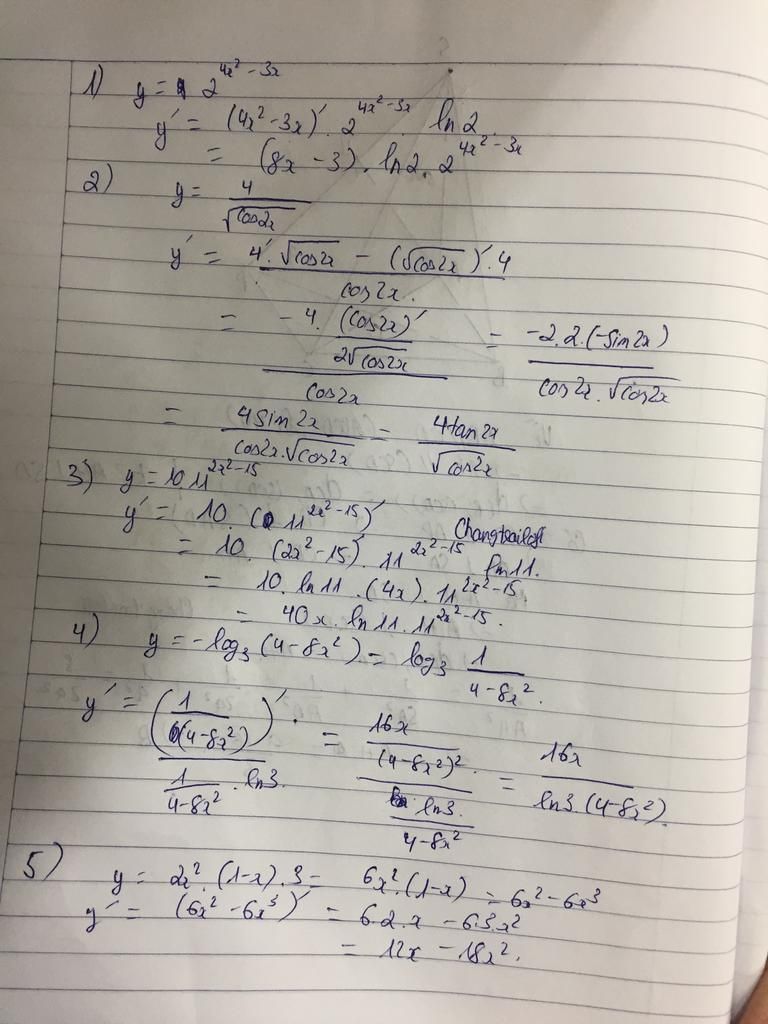 1) y = 2^{4x²-3x}
y' = (4x²-3x)' . 2^{4x²-3x} . ln2
= (8x-3) . ln2 . 2^{4x²-3x}
2) y = \frac{4}{\sqrt{cos2x}}
y' = \frac{4' . \sqrt{cos2x} - (\sqrt{cos2x})' . 4}{cos2x}
= \frac{-4 . \frac{(cos2x)'}{2\sqrt{cos2x}}}{cos2x} = \frac{-2.2.(-sin2x)}{cos2x . \sqrt{cos2x}}
= \frac{4sin2x}{cos2x.\sqrt{cos2x}} = \frac{4tan2x}{\sqrt{cos2x}}
3) y = 10.11^{2x²-15}
y' = 10 . (11^{2x²-15})'
= 10 . (2x²-15)' . 11^{2x²-15} ln11.
= 10 . ln11 . (4x) . 11^{2x²-15}.
= 40x . ln11 . 11^{2x²-15}.
4) y = -log₃(4-8x²) = log₃ \frac{1}{4-8x²}.
y' = \frac{(\frac{1}{(4-8x²)})'}{\frac{1}{4-8x²} . ln3.} = \frac{\frac{16x}{(4-8x²)²}}{\frac{ln3}{4-8x²}} = \frac{16x}{ln3.(4-8x²)}.
5) y = 2x² . (1-x) . 3 = 6x² . (1-x) = 6x² - 6x³
y' = (6x² - 6x³)' = 6.2.x - 6.3.x²
= 12x - 18x².